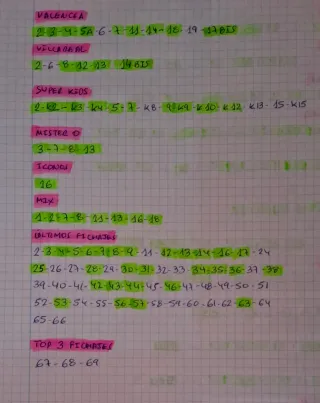 VALENCIA
2-3-4-5A-6-7-11-14-18-19-17BIS
VILLAREAL
2-6-8-12-13-14BIS
SUPER KIDS
2-K2-K3-K4-5-7-K8-9-K9-K10-K12-K13-15-K15
MISTER O
3-7-8-13
ICONOS
16
MIX
1-2-7-8-11-13-16-18
ÚLTIMOS FICHAJES
2-3-4-5-6-7-8-9-11-12-13-14-16-17-24
25-26-27-28-29-30-31-32-33-34-35-36-37-38
39-40-41-42-43-44-45-46-47-48-49-50-51
52-53-54-55-56-57-58-59-60-61-62-63-64
65-66
TOP 3 FICHAJES
67-68-69